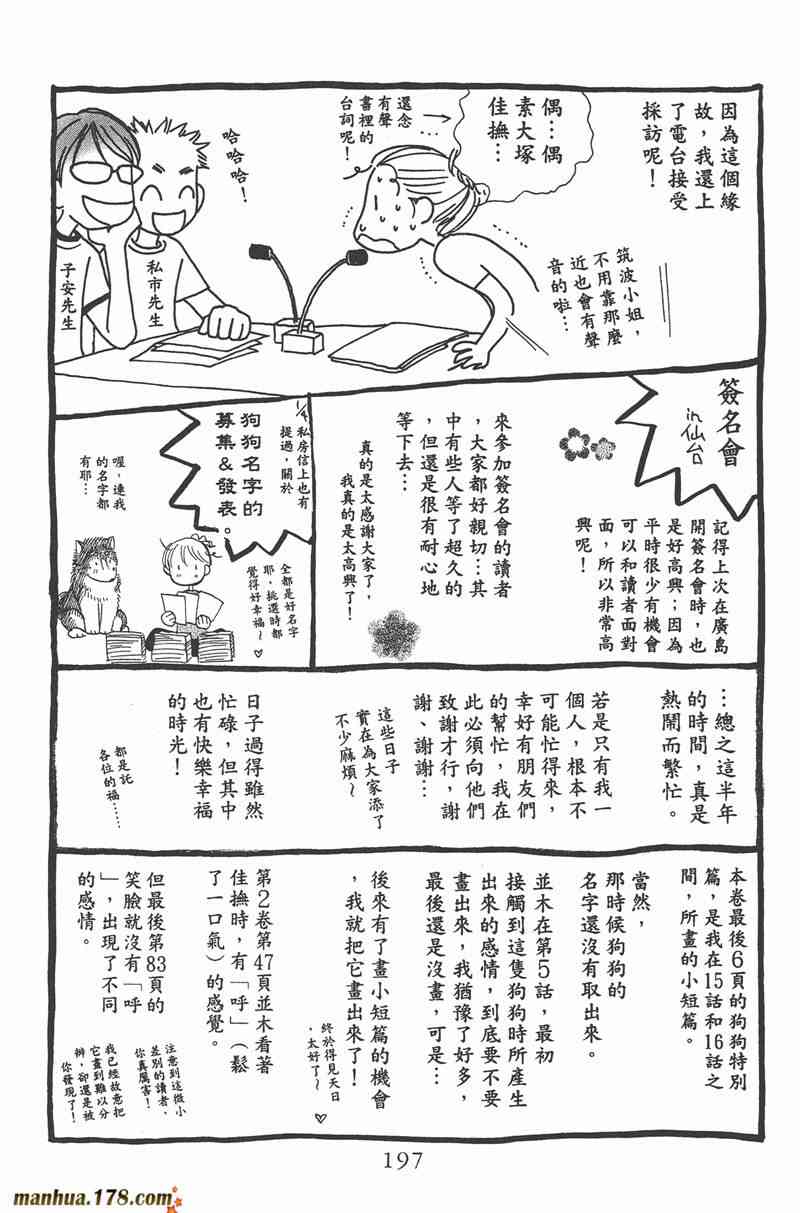 因為這個緣
故，我還上
了電台接受
採訪呢！
筑波小姐，
不用靠那麼
近也會有聲
音的啦…
偶…偶
素大塚
佳撫…
還念
有聲
書裡的
台詞呢！
哈哈哈！
私市先生
子安先生
簽名會
in仙台
記得上次在廣島
開簽名會時，也
是好高興；因為
平時很少有機會
可以和讀者面對
面，所以非常高
興呢！
來參加簽名會的讀者
，大家都好親切…其
中有些人等了超久的
，但還是很有耐心地
等下去…
真的是太感謝大家了，
我真的是太高興了！
1/4私房信上也有
提過，關於
狗狗名字的
募集&發表。
喔，連我
的名字都
有耶…
全都是好名字
耶，挑選時都
覺得好幸福～♥
…總之這半年
的時間，真是
熱鬧而繁忙。
若是只有我一
個人，根本不
可能忙得來，
幸好有朋友們
的幫忙，我在
此必須向他們
致謝才行，謝
謝、謝謝…
這些日子
實在為大家添了
不少麻煩～
日子過得雖然
忙碌，但其中
也有快樂幸福
的時光！
都是託
各位的福……
本卷最後6頁的狗狗特別
篇，是我在15話和16話之
間，所畫的小短篇。
當然，
那時候狗狗的
名字還沒有取出來。
並木在第5話，最初
接觸到這隻狗狗時所產生
出來的感情，到底要不要
畫出來，我猶豫了好多，
最後還是沒畫，可是…
後來有了畫小短篇的機會
，我就把它畫出來了！
終於得見天日
，太好了～♥
第2卷第47頁並木看著
佳撫時，有「呼」（鬆
了一口氣）的感覺。
但最後第83頁的
笑臉就沒有「呼
」，出現了不同
的感情。
注意到這微小
差別的讀者，
你真厲害！
我已經故意把
它畫到難以分
辨，卻還是被
你發現了！
197
manhua.178.com